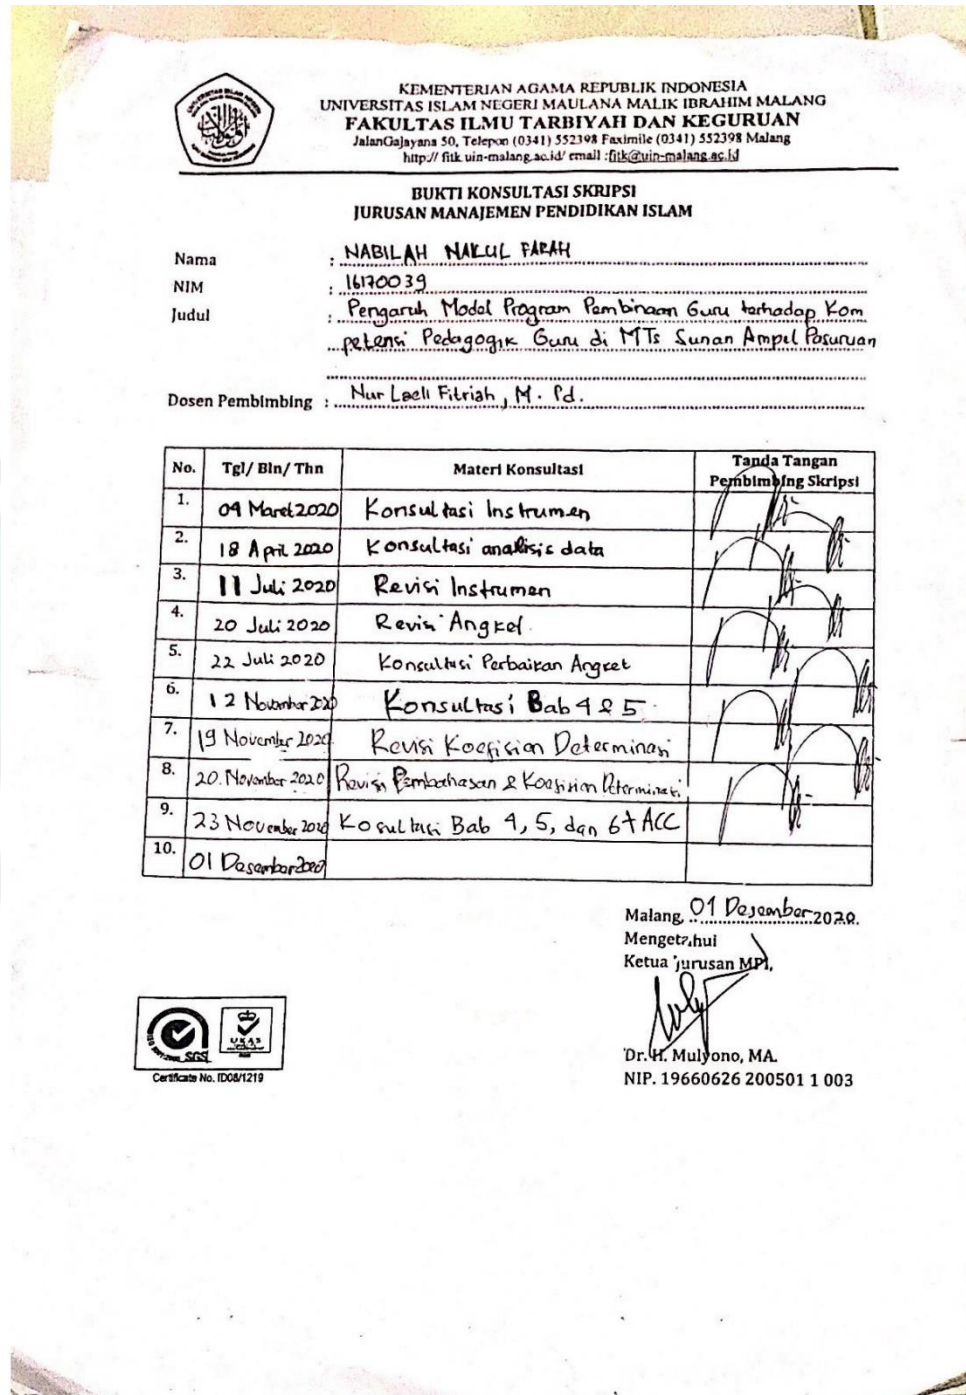 KEMENTERIAN AGAMA REPUBLIK INDONESIA
UNIVERSITAS ISLAM NEGERI MAULANA MALIK IBRAHIM MALANG
FAKULTAS ILMU TARBIYAH DAN KEGURUAN
JalanGajayana 50, Telepon (0341) 552398 Faximile (0341) 552398 Malang
http:// fitk.uin-malang.ac.id/ email :fitk@uin-malang.ac.id
BUKTI KONSULTASI SKRIPSI
JURUSAN MANAJEMEN PENDIDIKAN ISLAM
Nama : NABILAH NAILUL FARAH
NIM : 16170039
Judul : Pengaruh Model Program Pembinaan Guru terhadap Kom
petensi Pedagogik Guru di MTs Sunan Ampel Pasuruan
Dosen Pembimbing : Nur Laeli Fitriah, M. Pd.
No. Tgl/ Bln/ Thn Materi Konsultasi Tanda Tangan Pembimbing Skripsi
1. 04 Maret 2020 Konsultasi Instrumen
2. 18 April 2020 Konsultasi analisis data
3. 11 Juli 2020 Revisi Instrumen
4. 20 Juli 2020 Revisi Angket.
5. 22 Juli 2020 Konsultasi Perbaikan Angket
6. 12 November 2020 Konsultasi Bab 4 & 5.
7. 19 November 2020 Revisi Koefisien Determinasi
8. 20 November 2020 Revisi Pembahasan & Koefisien Determinasi
9. 23 November 2020 Kosultasi Bab 4, 5, dan 6 + ACC
10. 01 Desember 2020
Malang, 01 Desember 2020.
Mengetahui
Ketua Jurusan MPI,
Dr. H. Mulyono, MA.
NIP. 19660626 200501 1 003
SGS
UKAS
Certificate No. ID08/1219